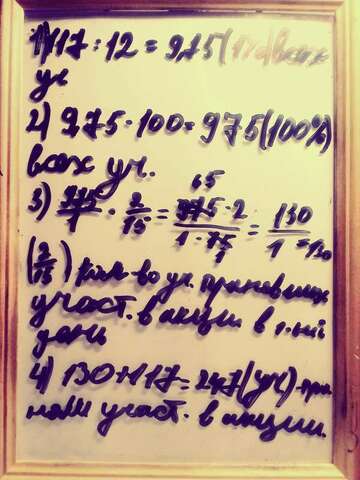 1) 117 : 12 = 9,75 (1%) всех
уч
2) 9,75 · 100 = 975 (100%)
всех уч.
65
3) 975/1 · 2/15 = 975 · 2 / 1 · 15 = 130/1 = 130
1
(2/15) кол-во уч. принявших
участ. в акции в 1-ый
день
4) 130 + 117 = 247 (уч) - при
няли участ. в акции.